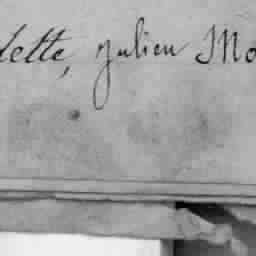 lette, Julien Mo